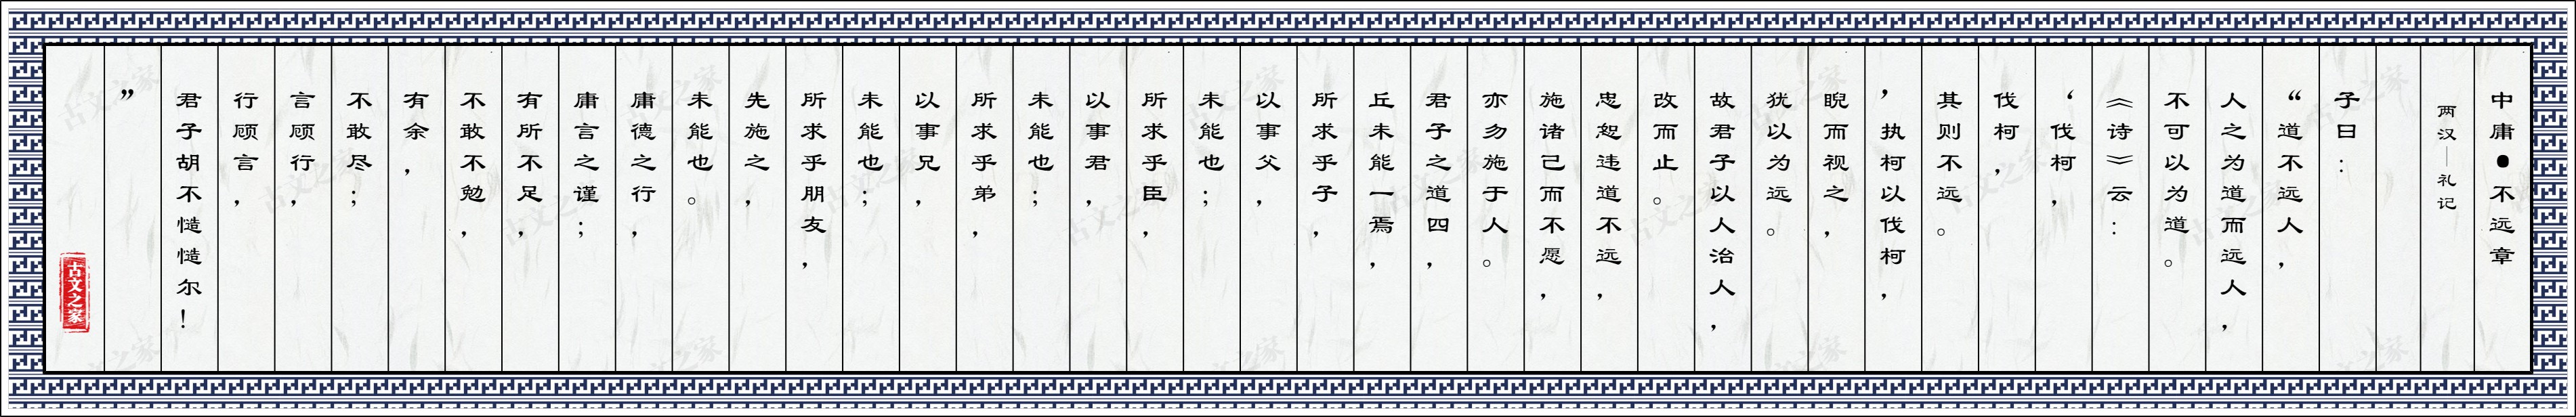 中庸●不远章
两汉—礼记
子曰：
“道不远人，
人之为道而远人，
不可以为道。
《诗》云：
‘伐柯，
伐柯，
其则不远。
’执柯以伐柯，
睨而视之，
犹以为远。
故君子以人治人，
改而止。
忠恕违道不远，
施诸己而不愿，
亦勿施于人。
君子之道四，
丘未能一焉，
所求乎子，
以事父，
未能也；
所求乎臣，
以事君，
未能也；
所求乎弟，
以事兄，
未能也；
所求乎朋友，
先施之，
未能也。
庸德之行，
庸言之谨；
有所不足，
不敢不勉，
有余，
不敢尽；
言顾行，
行顾言，
君子胡不慥慥尔！
”
古文之家